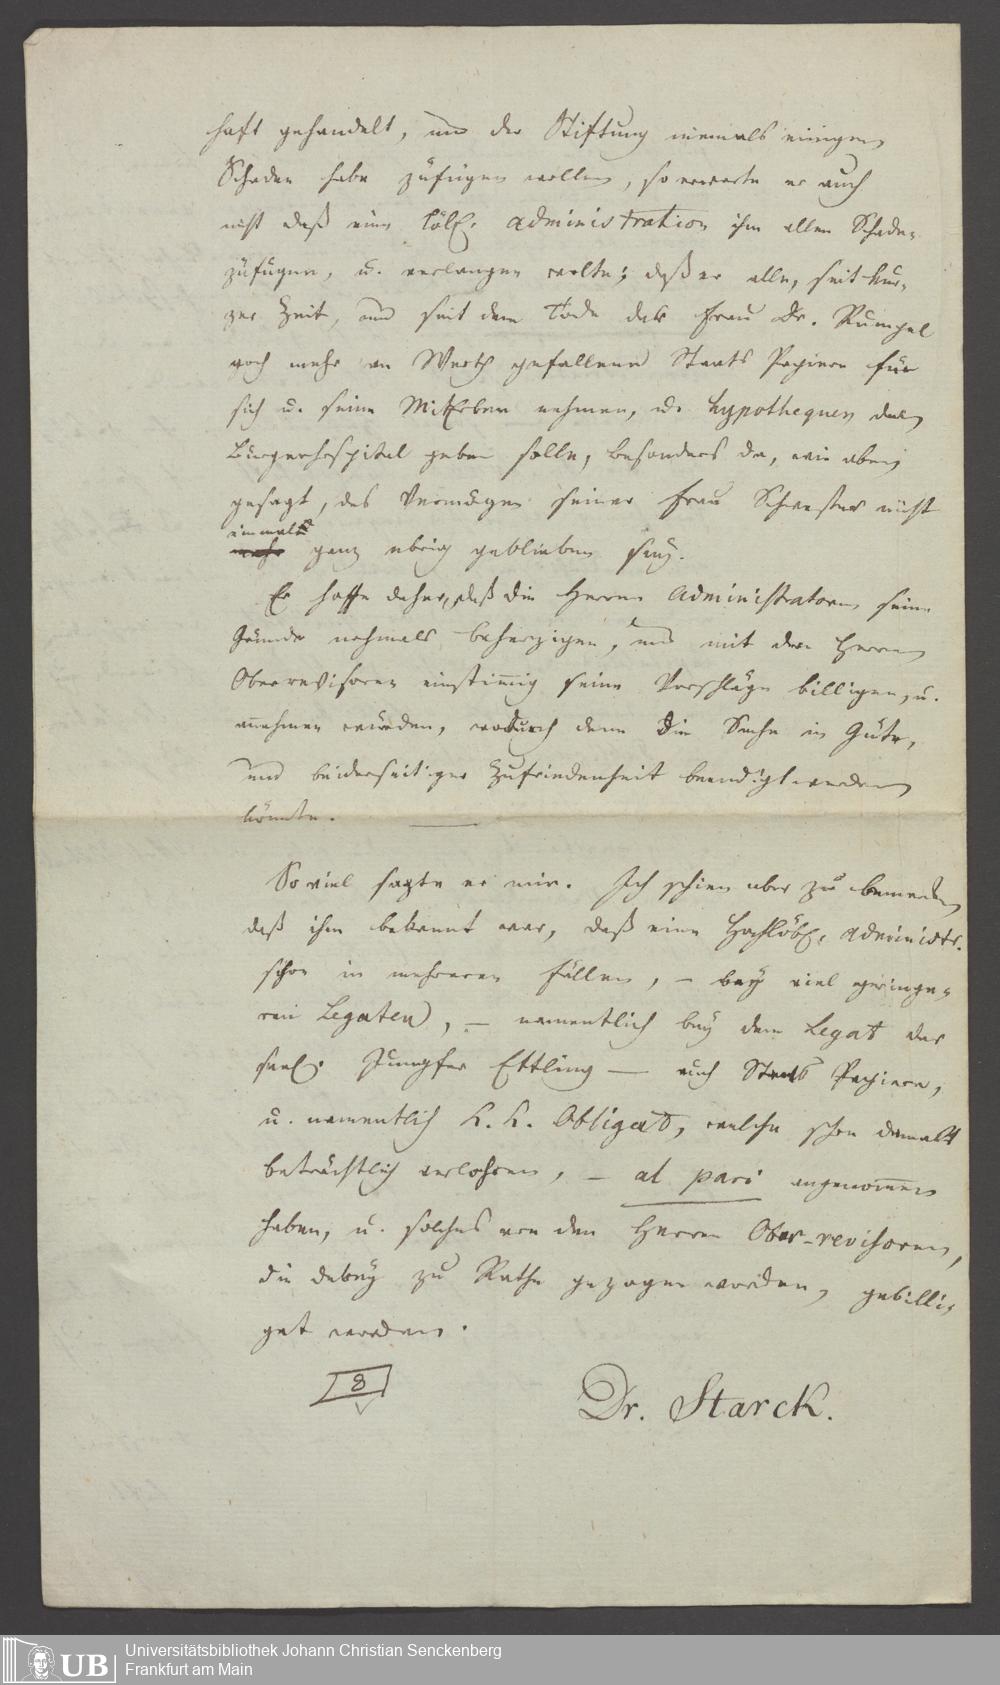 haft gehandelt, und der Stiftung niemals einigen
Schaden habe zufügen wollen, so erwarte er auch
nicht daß eine Löbl. Administration ihm allen Schaden
zufügen, u. verlangen wolte; daß er alle, seit kur-
zer Zeit, und seit dem Tode der Frau Dr. Rumpel
noch mehr an Werth gefallene Staats Papiere für
sich u. seine MitErben nehmen, u. Hypothequen dem
Bürgerhospital geben solle, besonders da, wie oben
gesagt, das Vermögen seiner Frau Schwester nicht
einmal
mehr ganz übrig geblieben sey.
Er hoffe daher, daß die Herren Administratoren seine
Gründe nochmals beherzigen, und mit den Herren
Oberrevisoren einstimmig seine Vorschläge billigen, u.
annehmen würden, wodurch denn die Sache in Güte,
und beiderseitiger Zufriedenheit beendigt werden
könnte.
So viel sagte er mir. Ich schien aber zu bemerken
daß ihm bekannt war, daß eine Hochlöbl. Administr.
schon in mehreren Fällen, – bey viel geringe-
ren Legaten, – namentlich bey dem Legat der
seel. Jungfer Ettling – auch Staats Papiere,
u. namentlich K. K. Obligat., welche schon damals
beträchtlich verlohren, – al pari angenommen
haben, u. solches von den Herren Ober-revisoren,
die dabey zu Rathe gezogen worden, gebilli-
get worden.
8
Dr. Starck.
UB
Universitätsbibliothek Johann Christian Senckenberg
Frankfurt am Main